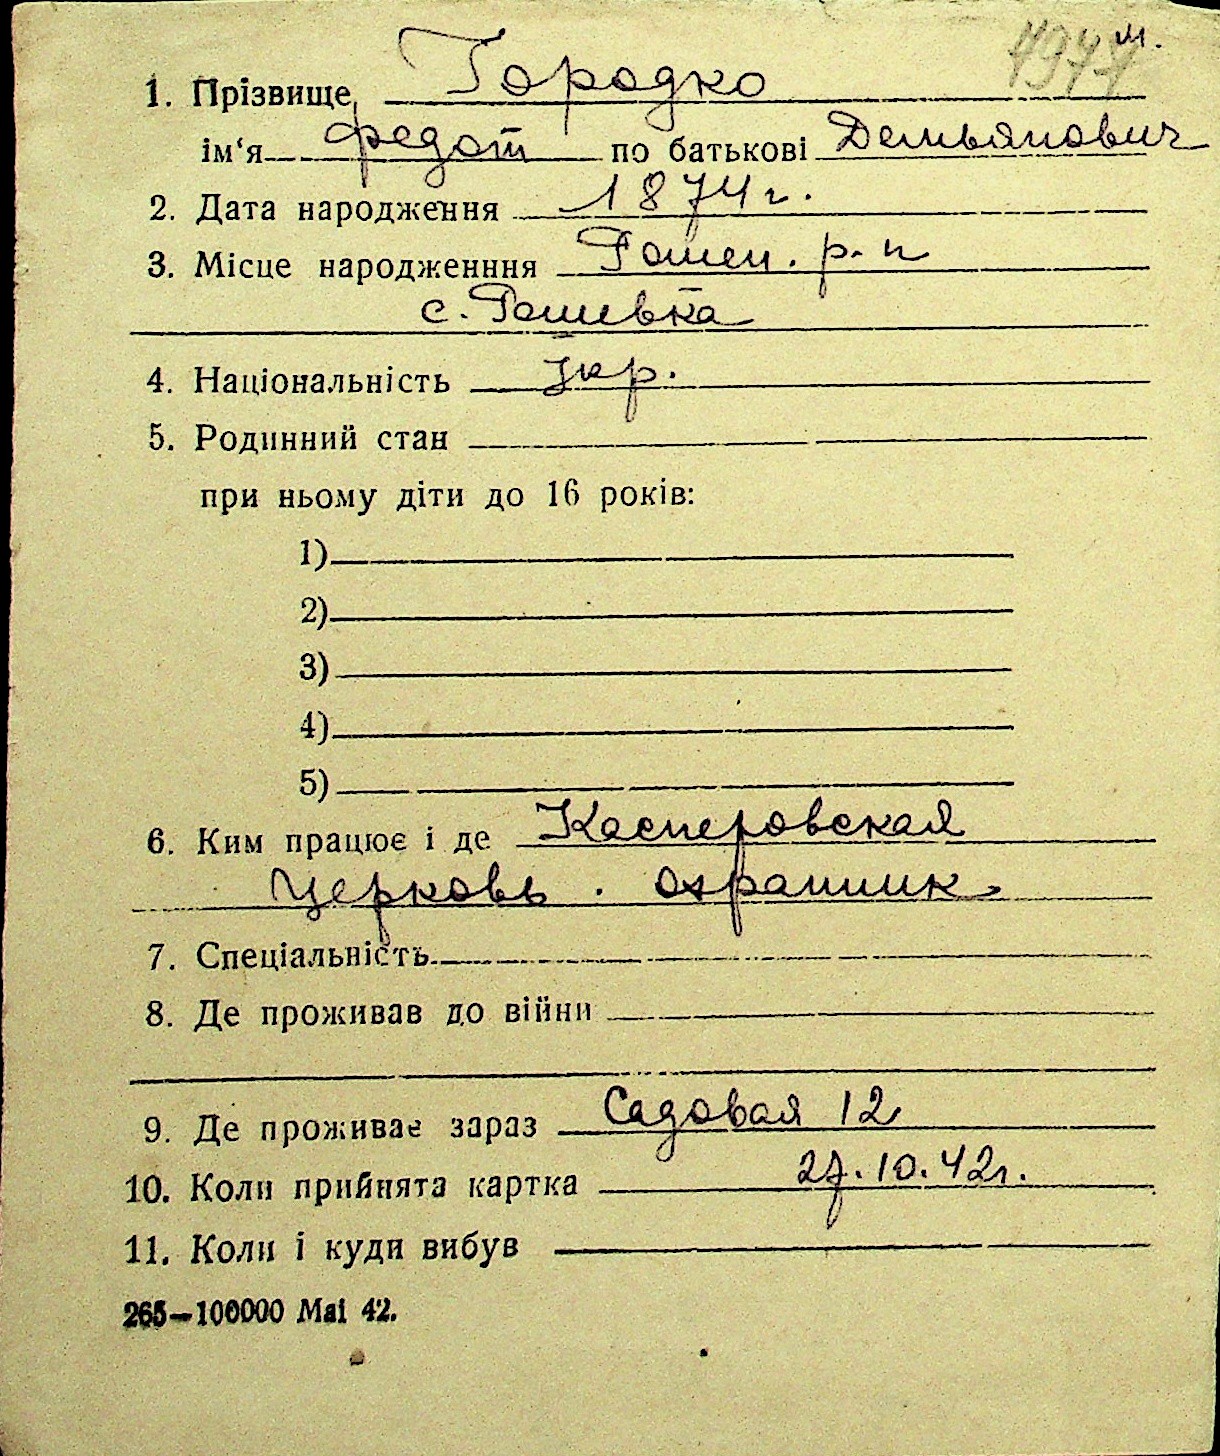 м.
1. Прізвище Городко
ім'я Федот по батькові Демьянович
2. Дата народження 1874 г.
3. Місце народженння р-н
с. Рашевка
4. Національність Укр.
5. Родинний стан
при ньому діти до 16 років:
1)
2)
3)
4)
5)
6. Ким працює і де Касперовская
Церковь. охранник
7. Спеціальність
8. Де проживав до війни
9. Де проживає зараз Садовая 12
10. Коли прийнята картка 27.10.42г.
11. Коли і куди вибув
265—100000 Mai 42.